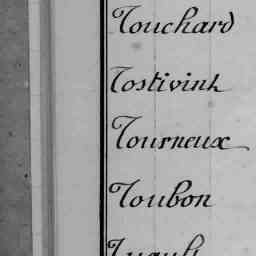 Touchard
Tostivink
Tourneux
Toubon